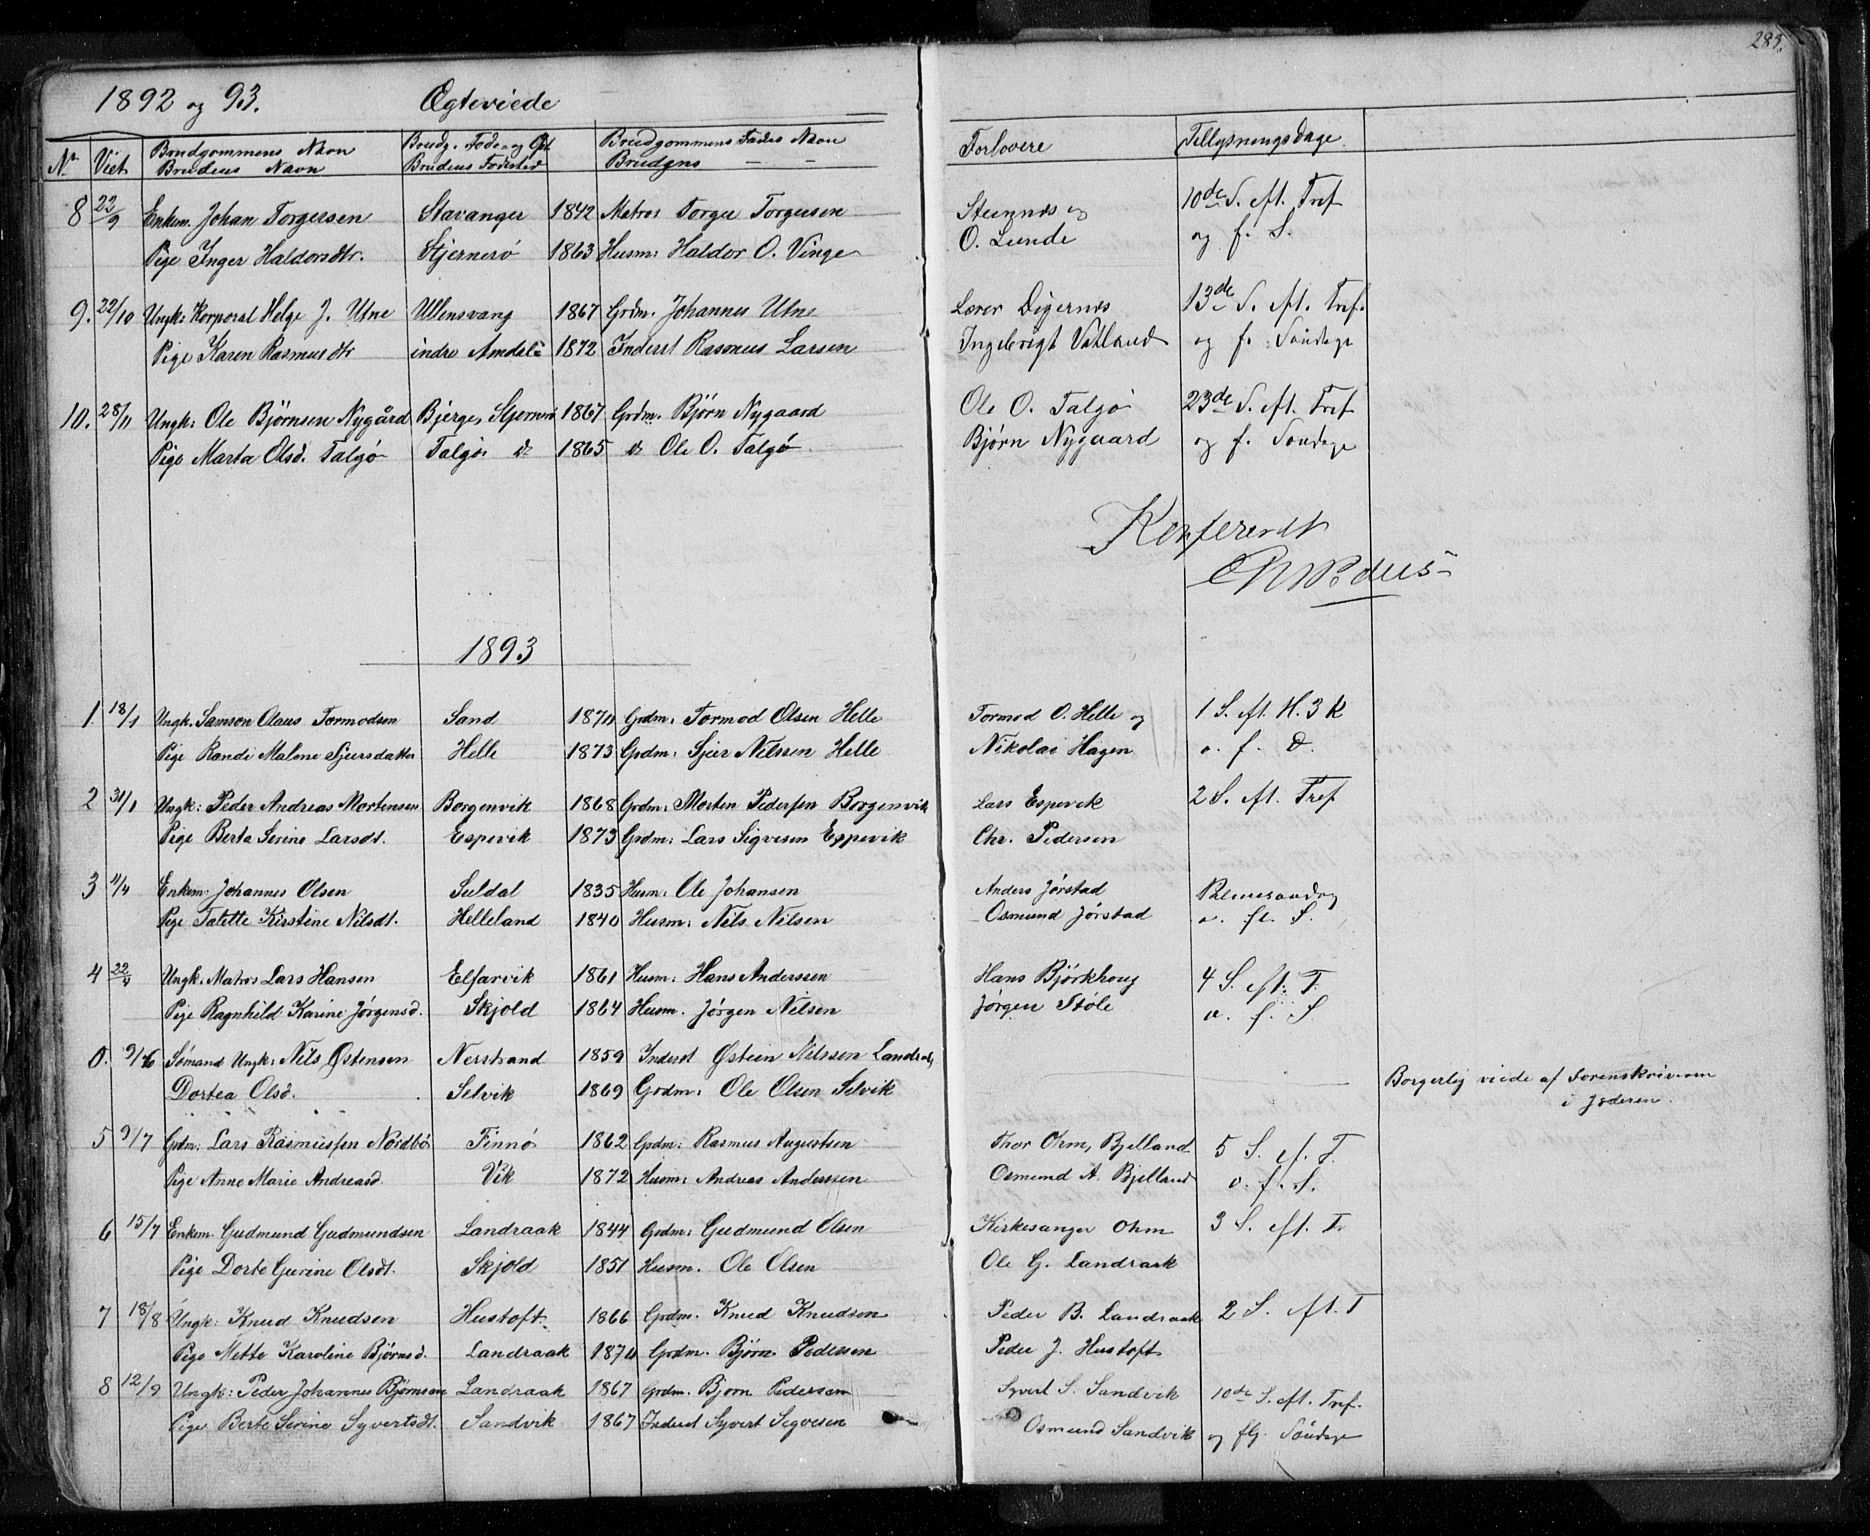 285.
1892 og 93. Ægteviede
Nr Viet Brudgommens Navn Brudg. Føde- og Brudgommens Faders Navn Forlovere Tillysningsdage
Brudens Navn Brudens Fødested Brudens — —
8 22/9 Enkem. Johan Torgersen Stavanger 1842 Matros Torger Torgersen Steinnes og 10de S. eft. Tref
Pige Inger Haldorsdtr. Stjernerö 1863 Husm: Haldor O. Vinge O. Lunde og f. S.
9. 22/10 Ungk: Korporal Helge J. Utne Ullensvang 1867 Grdm. Johannes Utne Lærer Digernes 13de S. eft. Tref.
Pige Karen Rasmusdtr indre Amdal 1872 Inderst Rasmus Larsen Ingebrigt Vatland og f. Söndage
10. 28/11 Ungk: Ole Björnsen Nygård Bjerge, Stjernerö 1867 Grdm. Bjørn Nygaard Ole O. Talgö 23de S. eft. Tref
Pige Marta Olsd. Talgö Talgö do 1865 do Ole O. Talgö Bjørn Nygaard og f. Söndage
Konfereret
1893
1 18/1 Ungk. Samson Olaus Tormodsen Sand 1870 Grdm. Tormod Olsen Helle Tormod O. Helle og 1 S. eft. H. 3 K
Pige Randi Malene Sjursdatter Helle 1873 Grdm: Sjur Nilssen Helle Nikolai Hagen o. f. D.
2 31/1 Ungk: Peder Andreas Mortensen Borgenvik 1868 Grdm: Morten Pedersen Borgenvik Lars Espevik 2 S. eft. Tref
Pige Berta Serine Larsdt. Espevik 1873 Grdm: Lars Sigvesen Espevik Chr. Pedersen
3 4/4 Enkem. Johannes Olsen Suldal 1835 Husm: Ole Johansen Anders Jørstad Palmesöndag
Pige Talette Kirstine Nilsdt. Helleland 1840 Husm: Nils Nilsen Osmund Jørstad o. fl. S.
4 22/4 Ungk: Matros Lars Hansen Elfarvik 1861 Husm: Hans Anderssen Hans Björkhoug 4 S. eft. T.
Pige Ragnhild Karine Jörgensd. Skjold 1864 Husm. Jörgen Nilsen Jörgen Støle o. f. S
0. 9/6 Sömand Ungk: Nils Østensen Nerstrand 1859 Inderst Østein Nilssen Landraak
Dortea Olsd. Selvik 1869 Grdm: Ole Olsen Selvik Borgerlig viede af Sorenskriveren
i Jæderen.
5 9/7 Grdm: Lars Rasmussen Nordbö Finnö 1862 Grdm: Rasmus Augustsen Thor Ohm, Bjelland 5 S. ef. T.
Pige Anne Marie Andreasd. Vik 1872 Husm: Andreas Anderssen Osmund A. Bjelland o. f. S.
6 15/7 Enkem. Gudmund Gudmundsen Landraak 1844 Grdm: Gudmund Olsen Kirkesanger Ohm 3 S. eft. T.
Pige Dorte Gurine Olsdt. Skjold 1851 Husm. Ole Olsen Ole G. Landraak
7 18/8 Ungk: Knud Knudsen Hustoft 1866 Grdm. Knud Knudsen Peder B. Landraak 2 S. eft. T
Pige Mette Karoline Björnsd. Landraak 1870 Grdm. Björn Pedersen Peder J. Hustoft
8 12/9 Ungk: Peder Johannes Björnsen Landraak 1867 Grdm. Bjorn Pedersen Syvert S. Sandvik 10de S. eft. Tref.
Pige Berte Serine Syvertsdt. Sandvik 1867 Inderst Syvert Sigvesen Osmund Sandvik og flg. Söndage